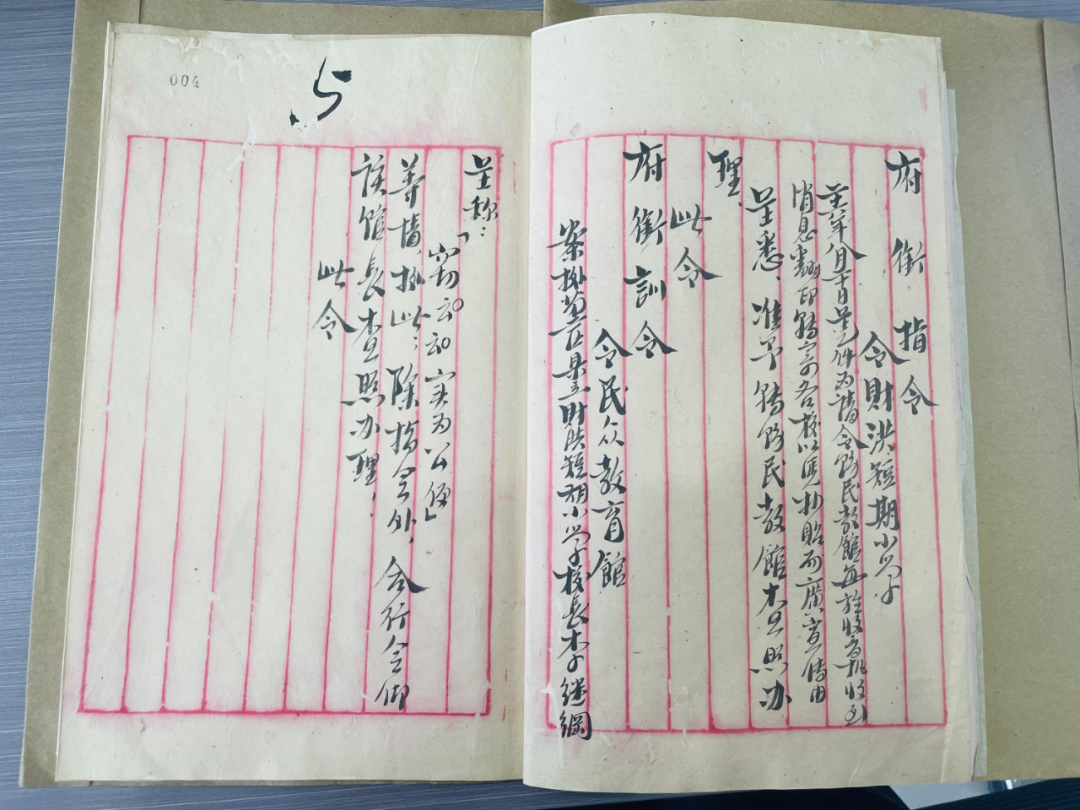 府銜指令
令財洪短期小学
呈一件为請令飭民教館每於收音机收到
消息翻印轉寄各校以凭抄貼而廣宣傳由
呈悉、准予轉飭民教館查照办
理、
此令
府銜訓令
令民众教育館
案據財洪短期小学校長李继綱
004
5
呈称：
「窃云云实为公便」
等情，据此：除指令外，合行令仰
该館長查照办理．
此令